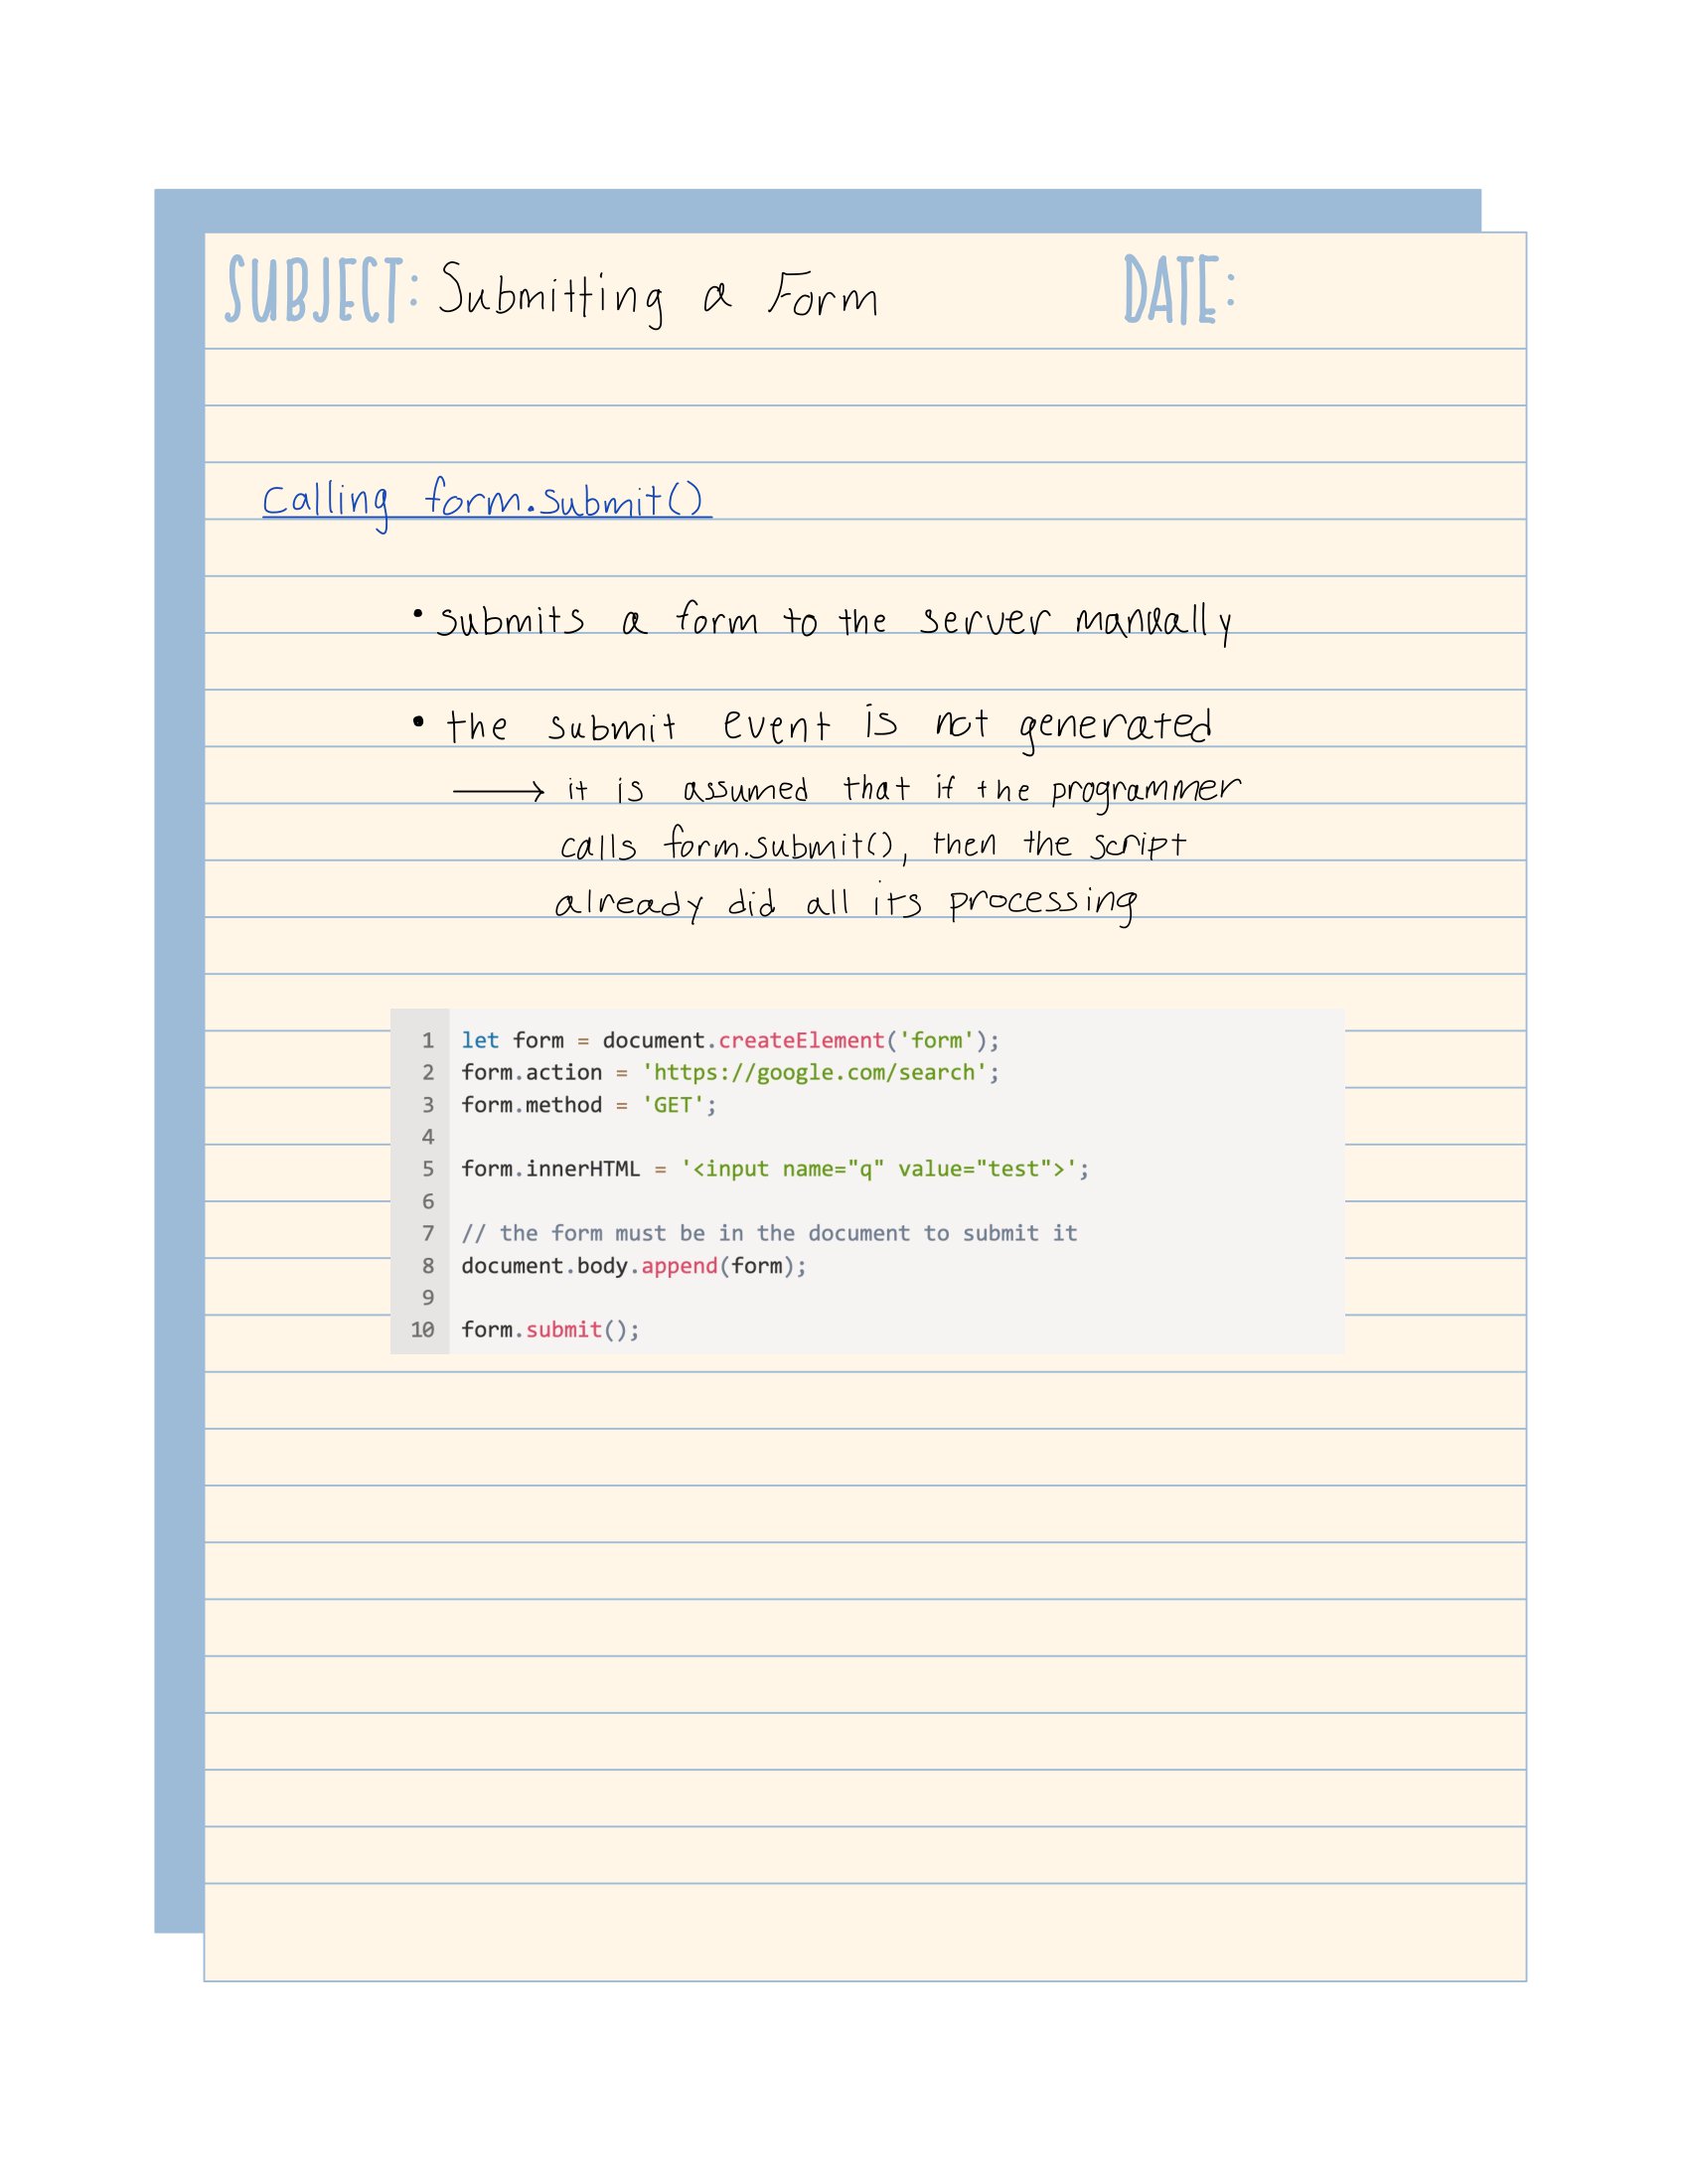 SUBJECT: Submitting a Form DATE:
Calling form.submit()
• submits a form to the server manually
• the submit event is not generated
⟶ it is assumed that if the programmer
calls form.submit(), then the script
already did all its processing
1 let form = document.createElement('form');
2 form.action = 'https://google.com/search';
3 form.method = 'GET';
4
5 form.innerHTML = '<input name="q" value="test">';
6
7 // the form must be in the document to submit it
8 document.body.append(form);
9
10 form.submit();